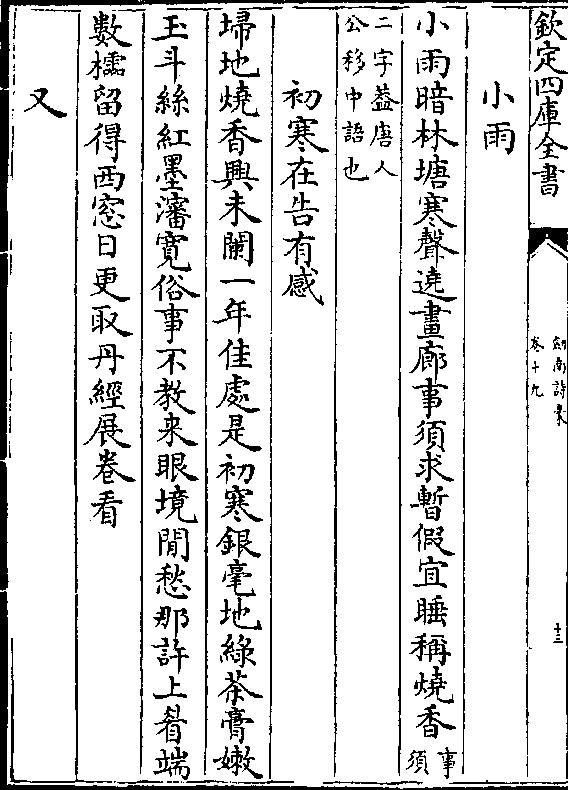 欽定四庫全書
劍南詩稾
卷十九
十三
小雨
小雨暗林塘寒聲遶畫廊事須求暫假宜睡稱燒香事須
二字葢唐人
公移中語也
初寒在告有感
埽地燒香興未闌一年佳處是初寒銀毫地綠茶膏嫩
玉斗絲紅墨瀋寛俗事不教来眼境閒愁那許上眉端
數櫺留得西窓日更取丹經展卷看
又